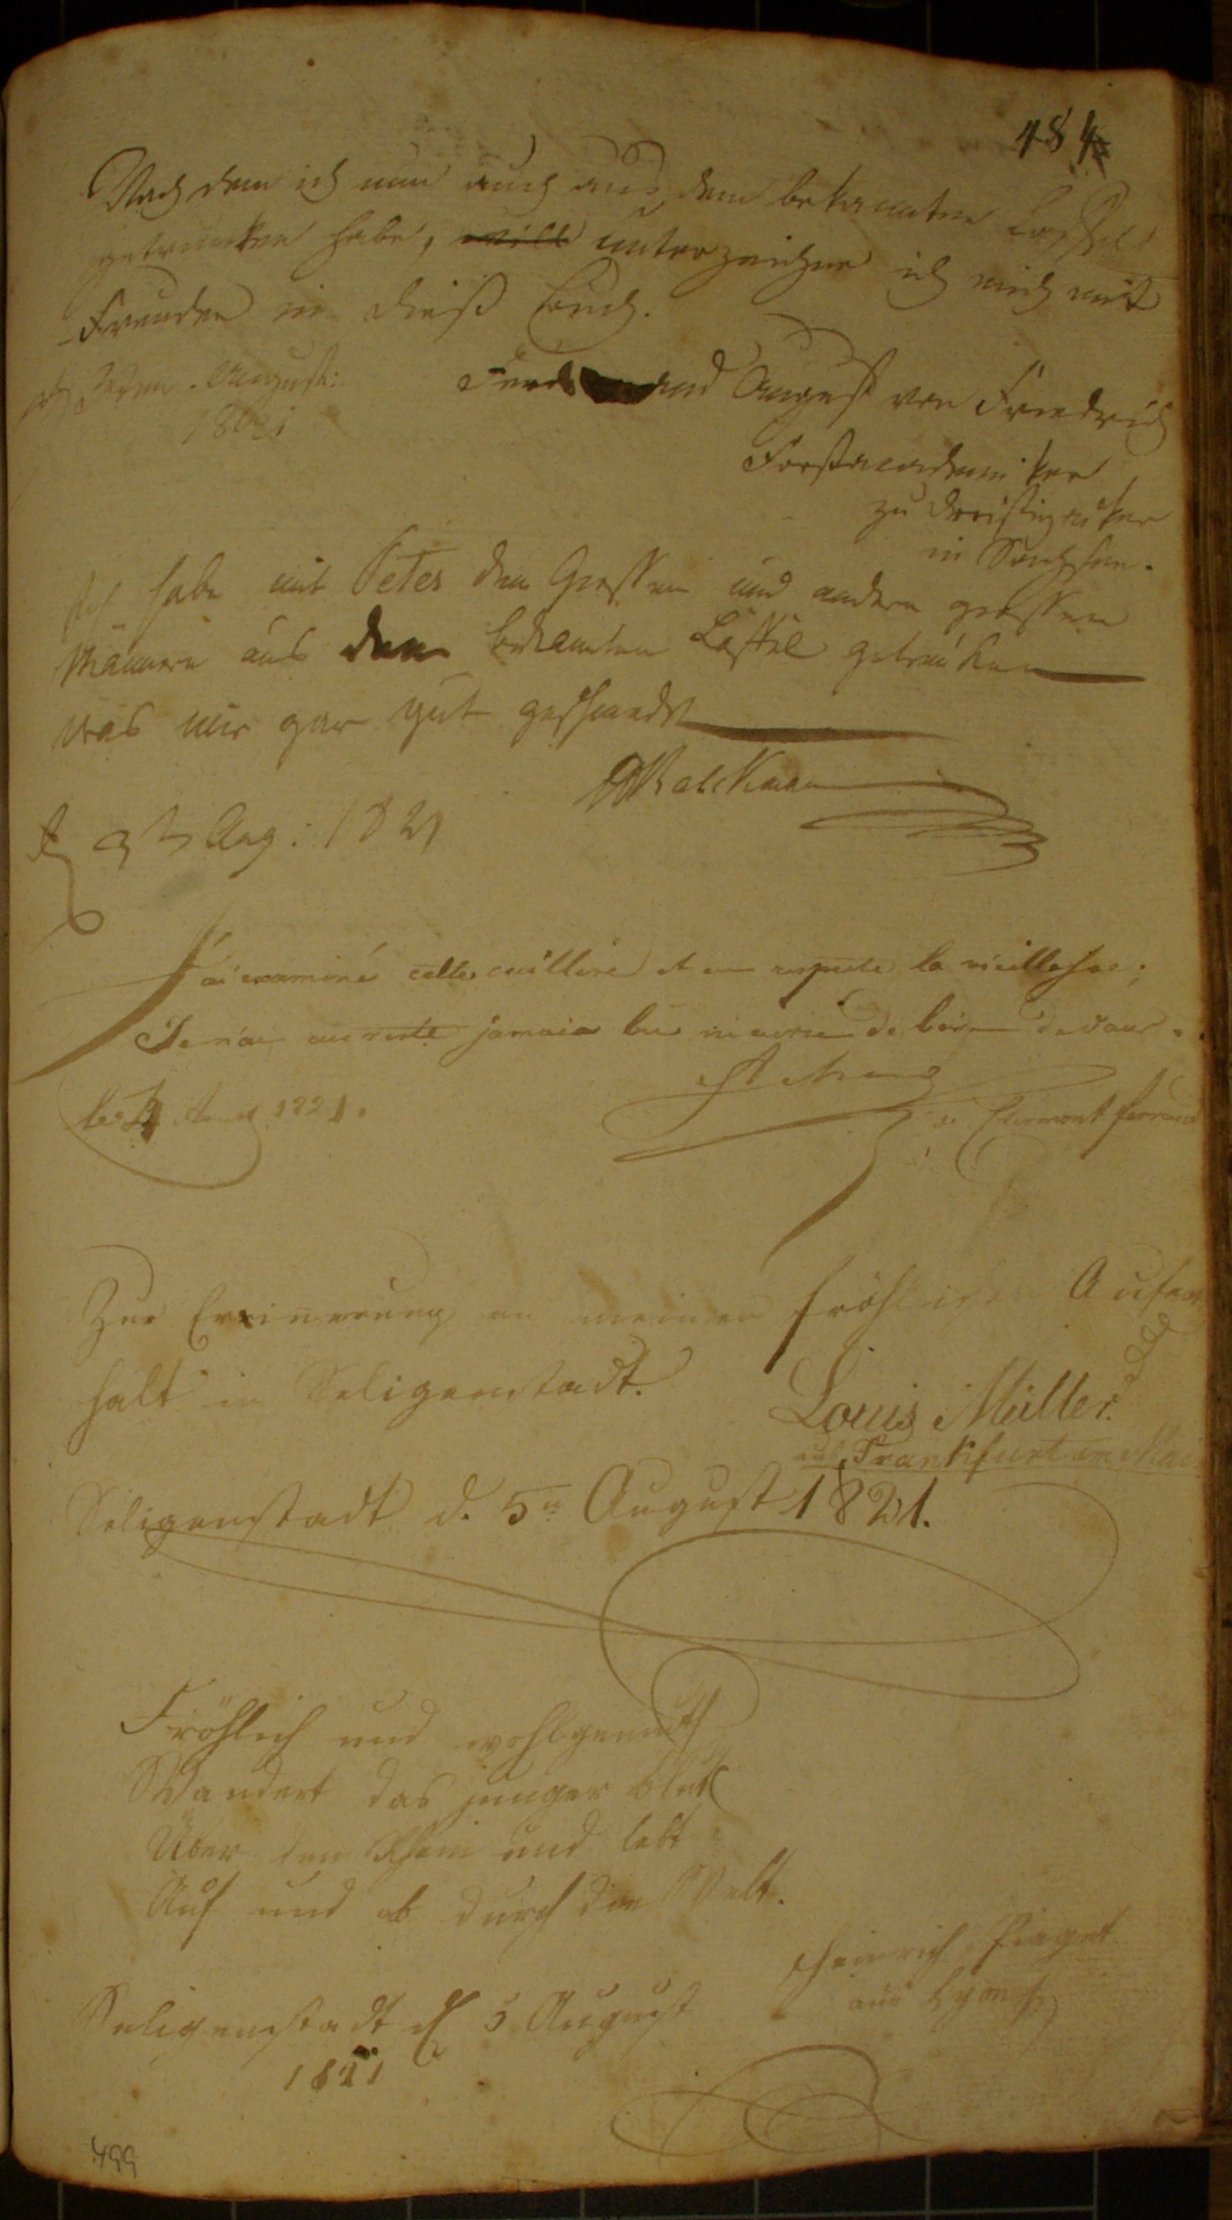 484
Nachdem ich nun auch aus dem bekannten Löffel
getrunken habe, will unterzeichne ich mich mit
Freuden in dieß Buch.
August
1821
Ferdinand August von Friedrich
Forstacademiker
zu Dreißigacker
in Sachsen.
Ich habe mit Peter dem Großen und andern großen
Männern aus dem bekannten Löffel getrunken
was mir gar gut geschmeckt
Aug: 1821
J'ai examiné cette cuillère et en respecte la vieillesse;
Je n'ai au reste jamais bu ni envie de boire dedans.
le 4 1821.
de Clermont ferrand
Zur Erinnerung an meinen fröhlichen Aufent
halt in Seligenstadt.
Louis Müller.
aus Frankfurt am Main
Seligenstadt d. 5n August 1821.
Fröhlich und wohlgemuth
Wandert das junger Blut
Über den Rhein und
Auf und ab durch die Welt.
Heinrich Piaget
aus
Seligenstadt d 5 August
1821
499